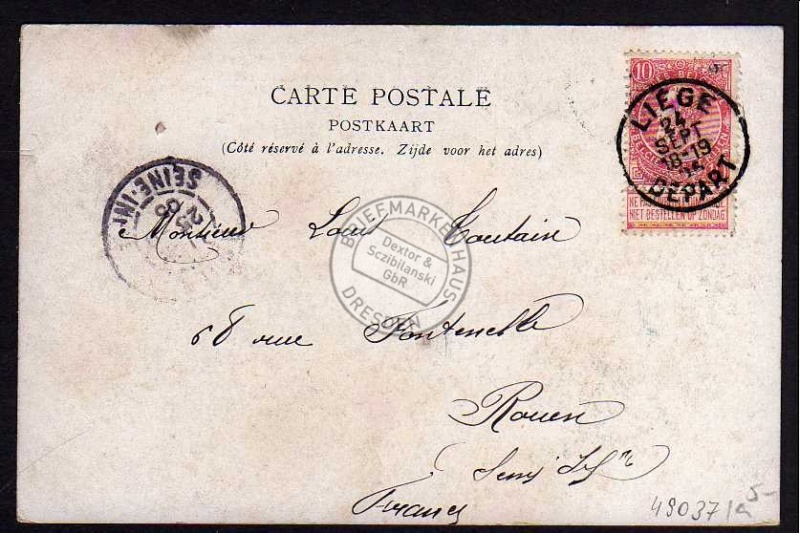 CARTE POSTALE
POSTKAART
(Côté réservé à l'adresse. Zijde voor het adres)
10
LIEGE
24
SEPT
18-19
DEPART
NE PAS
NIET BESTELLEN OP ZONDAG
SEINE-INF
BRIEFMARKENHAUS
Dextor &
Sczibilanski
GbR
DRESDEN
Monsieur Louis Coutain
68 rue Fontenelle
Rouen
France
49037/a
5-